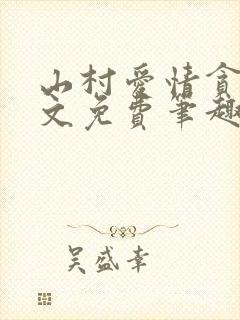 山村爱情贪
文免費筆趣
吴盛幸